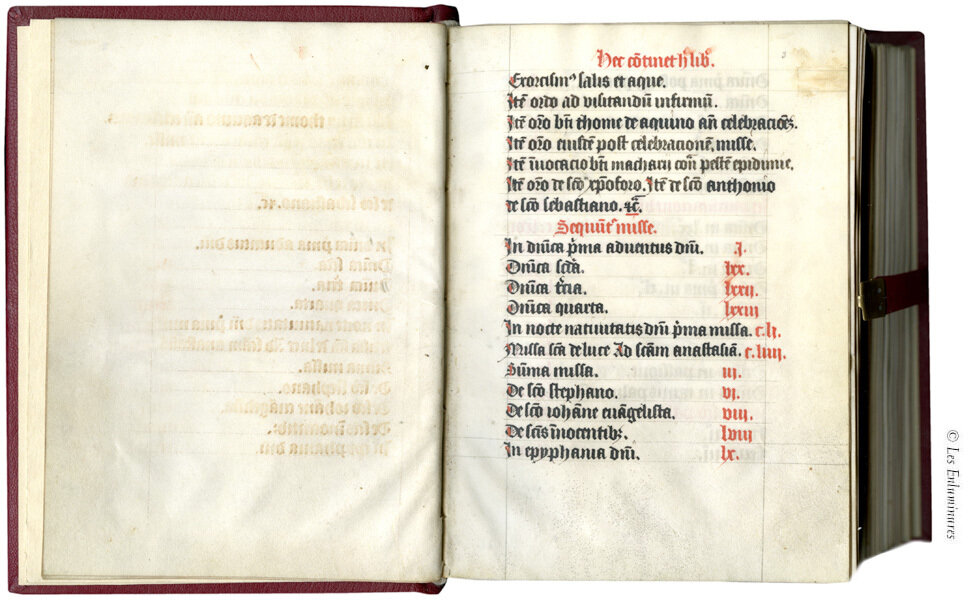 Hec cōtinet h lib̄.
Exorcism⁹ salis et aque.
Itē ordo ad visitandū infirmū.
Itē oro bti thome de aquino an̄ celebracōes.
Itē oro eiusdē post celebracionē misse.
Itē inuocacio bti macharii cōn pestē epidimie.
Itē oro de scō xp̄oforo. Itē de scō anthonio
de scō sebastiano. ⁊c̄.
Sequūt̄ misse.
In dn̄ica p̄ma aduentus dn̄i. j.
Dn̄ica scd̄a. lxx.
Dn̄ica t̄cia. lxxii.
Dn̄ica quarta. lxxiii
In nocte natiuitatis dn̄i p̄ma missa. c. li.
Missa scd̄a de luce Ad scām anastasiā. c. liiii.
Sūma missa. iii.
De scō stephano. vi.
De scō iohāne euāgelista. viii.
De scīs īnocentib⁹. lviii
In epyphania dn̄i. lx.
© Les Enluminures